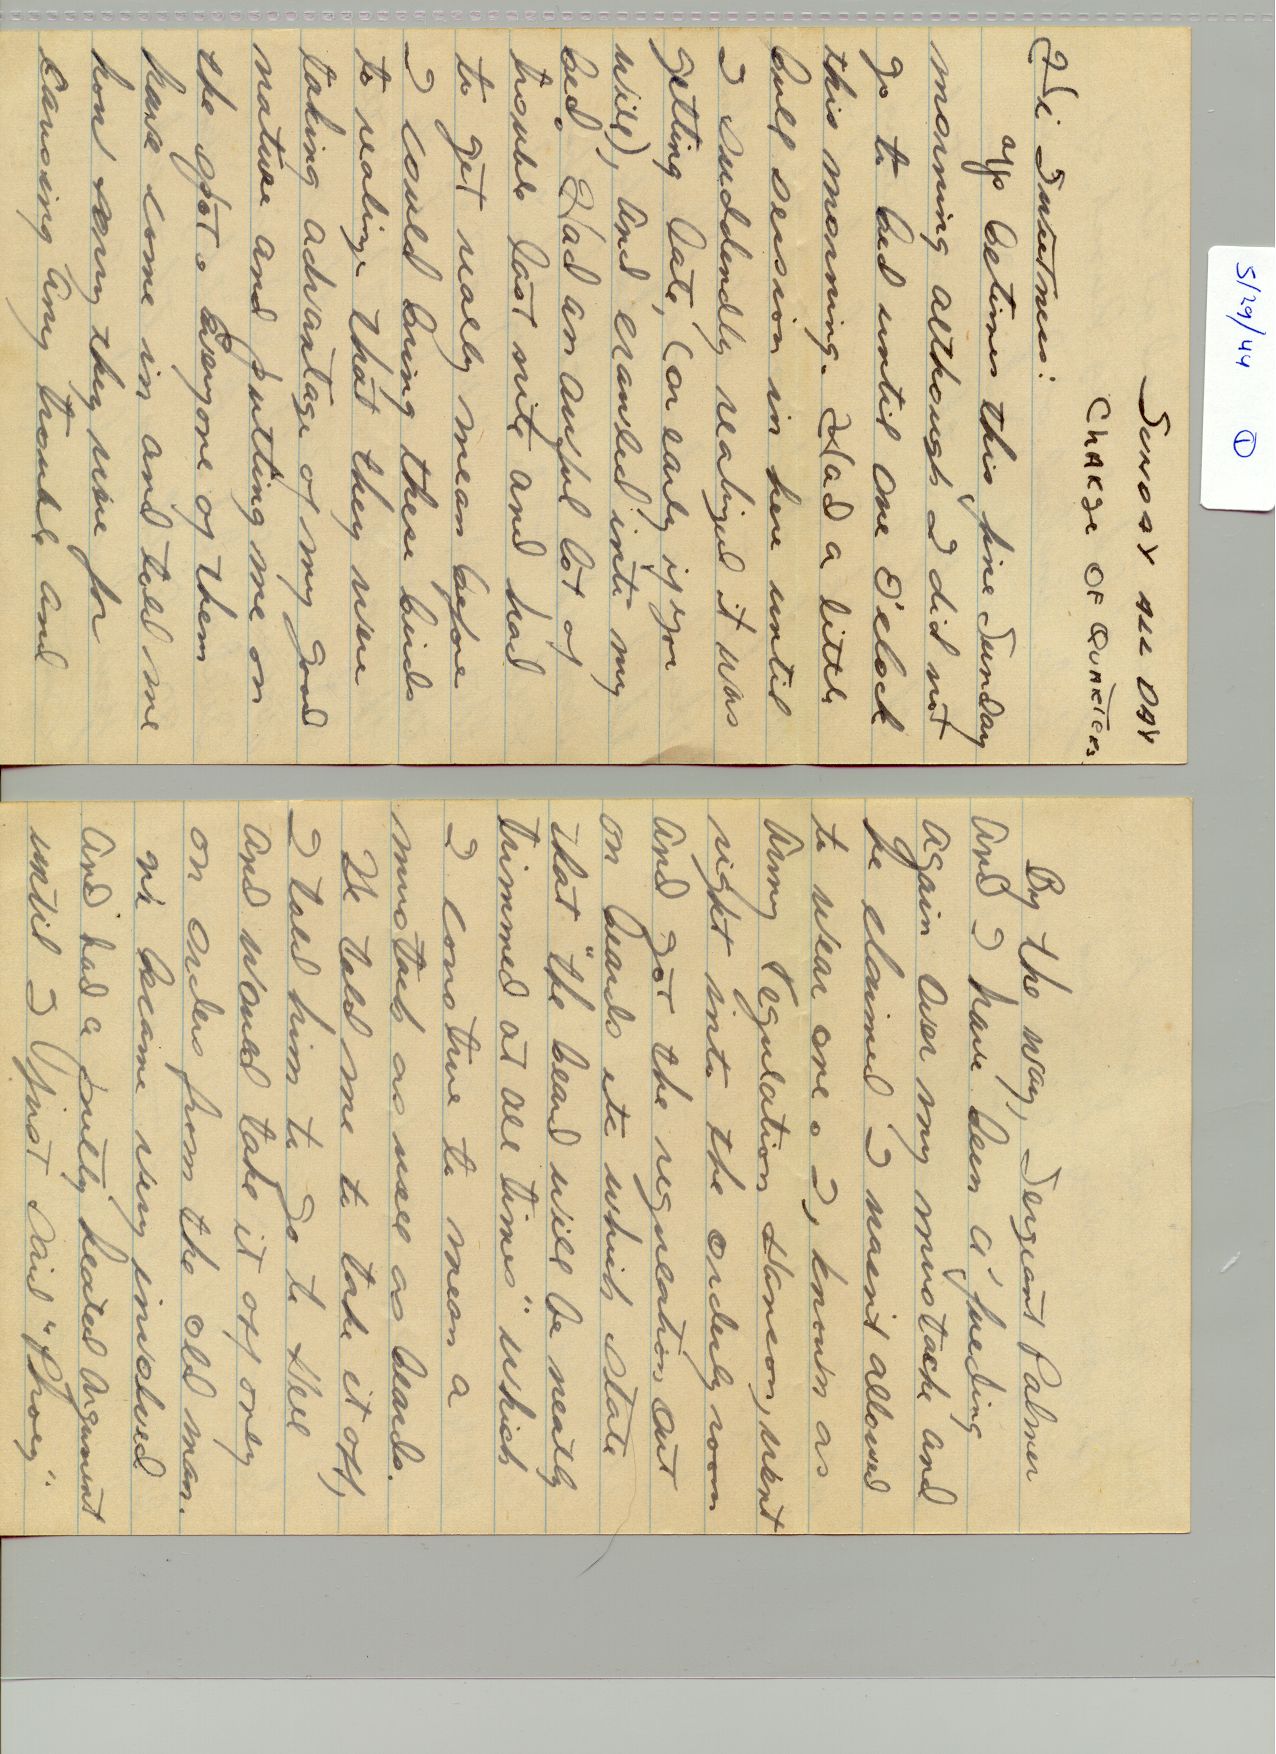 5/29/44 ①
SUNDAY ALL DAY
CHARGE OF QUARTERS
Hi Sweetness:
up betimes this fine Sunday
morning although I did not
go to bed until one O'clock
this morning. Had a little
bull session in here until
I suddenly realized it was
getting late, (or early if you
will), and crawled into my
bed. Had an awful lot of
trouble last nite and had
to get really mean before
I could bring these birds
to realize that they were
taking advantage of my good
nature and putting me on
the spot. Everyone of them
have come in and told me
how sorry they were for
causing any trouble and
By the way, Sergeant Palmer
and I have been a' fueding
again over my mustache and
he claimed I wasn't allowed
to wear one. I, known as
Army Regulation Hanson, went
right into the orderly room
and got the regulation out
on beards etc which state
that "the beard will be neatly
trimmed at all times" which
I construe to mean a
mustach as well as beards.
He told me to take it off,
I told him to go to Hell
and would take it off only
on orders from the old man.
We became very involved
and had a pretty heated argument
until I just said "Phooey"